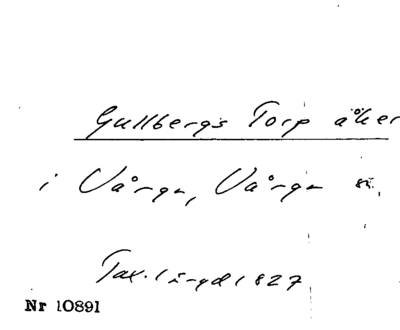 Gullbergs Torp åker
i Vårgn, Vårgn sn.
Tax.längd 1827
Nr 10891